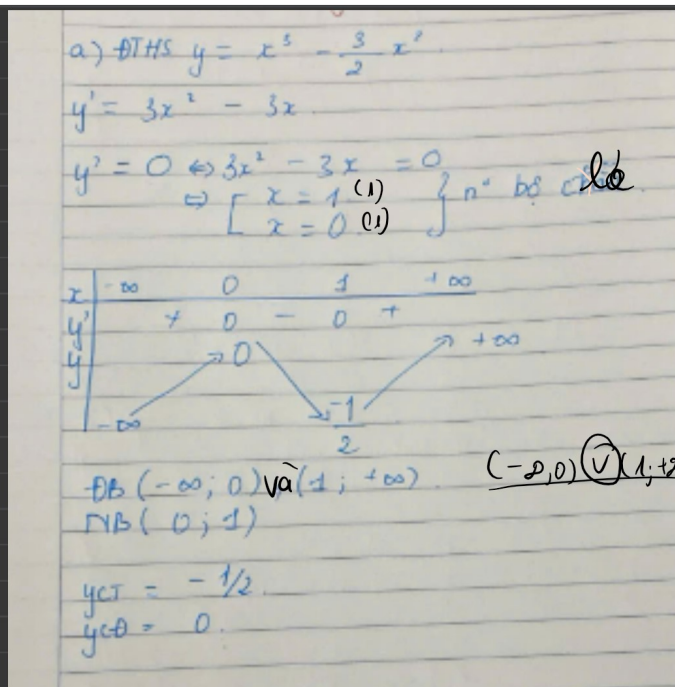 a) ĐTHS y = x³ - 3/2 x²
y' = 3x² - 3x
y' = 0 ⇔ 3x² - 3x = 0
⇔ [ x = 1 (1)
x = 0 (1) } nº bộ lẻ
x -∞ 0 1 +∞
y' + 0 - 0 +
y -∞ 0 -1/2 +∞
ĐB (-∞; 0) và (1; +∞) (-∞,0) V (1;+∞
NB (0; 1)
yCT = -1/2
yCĐ = 0.